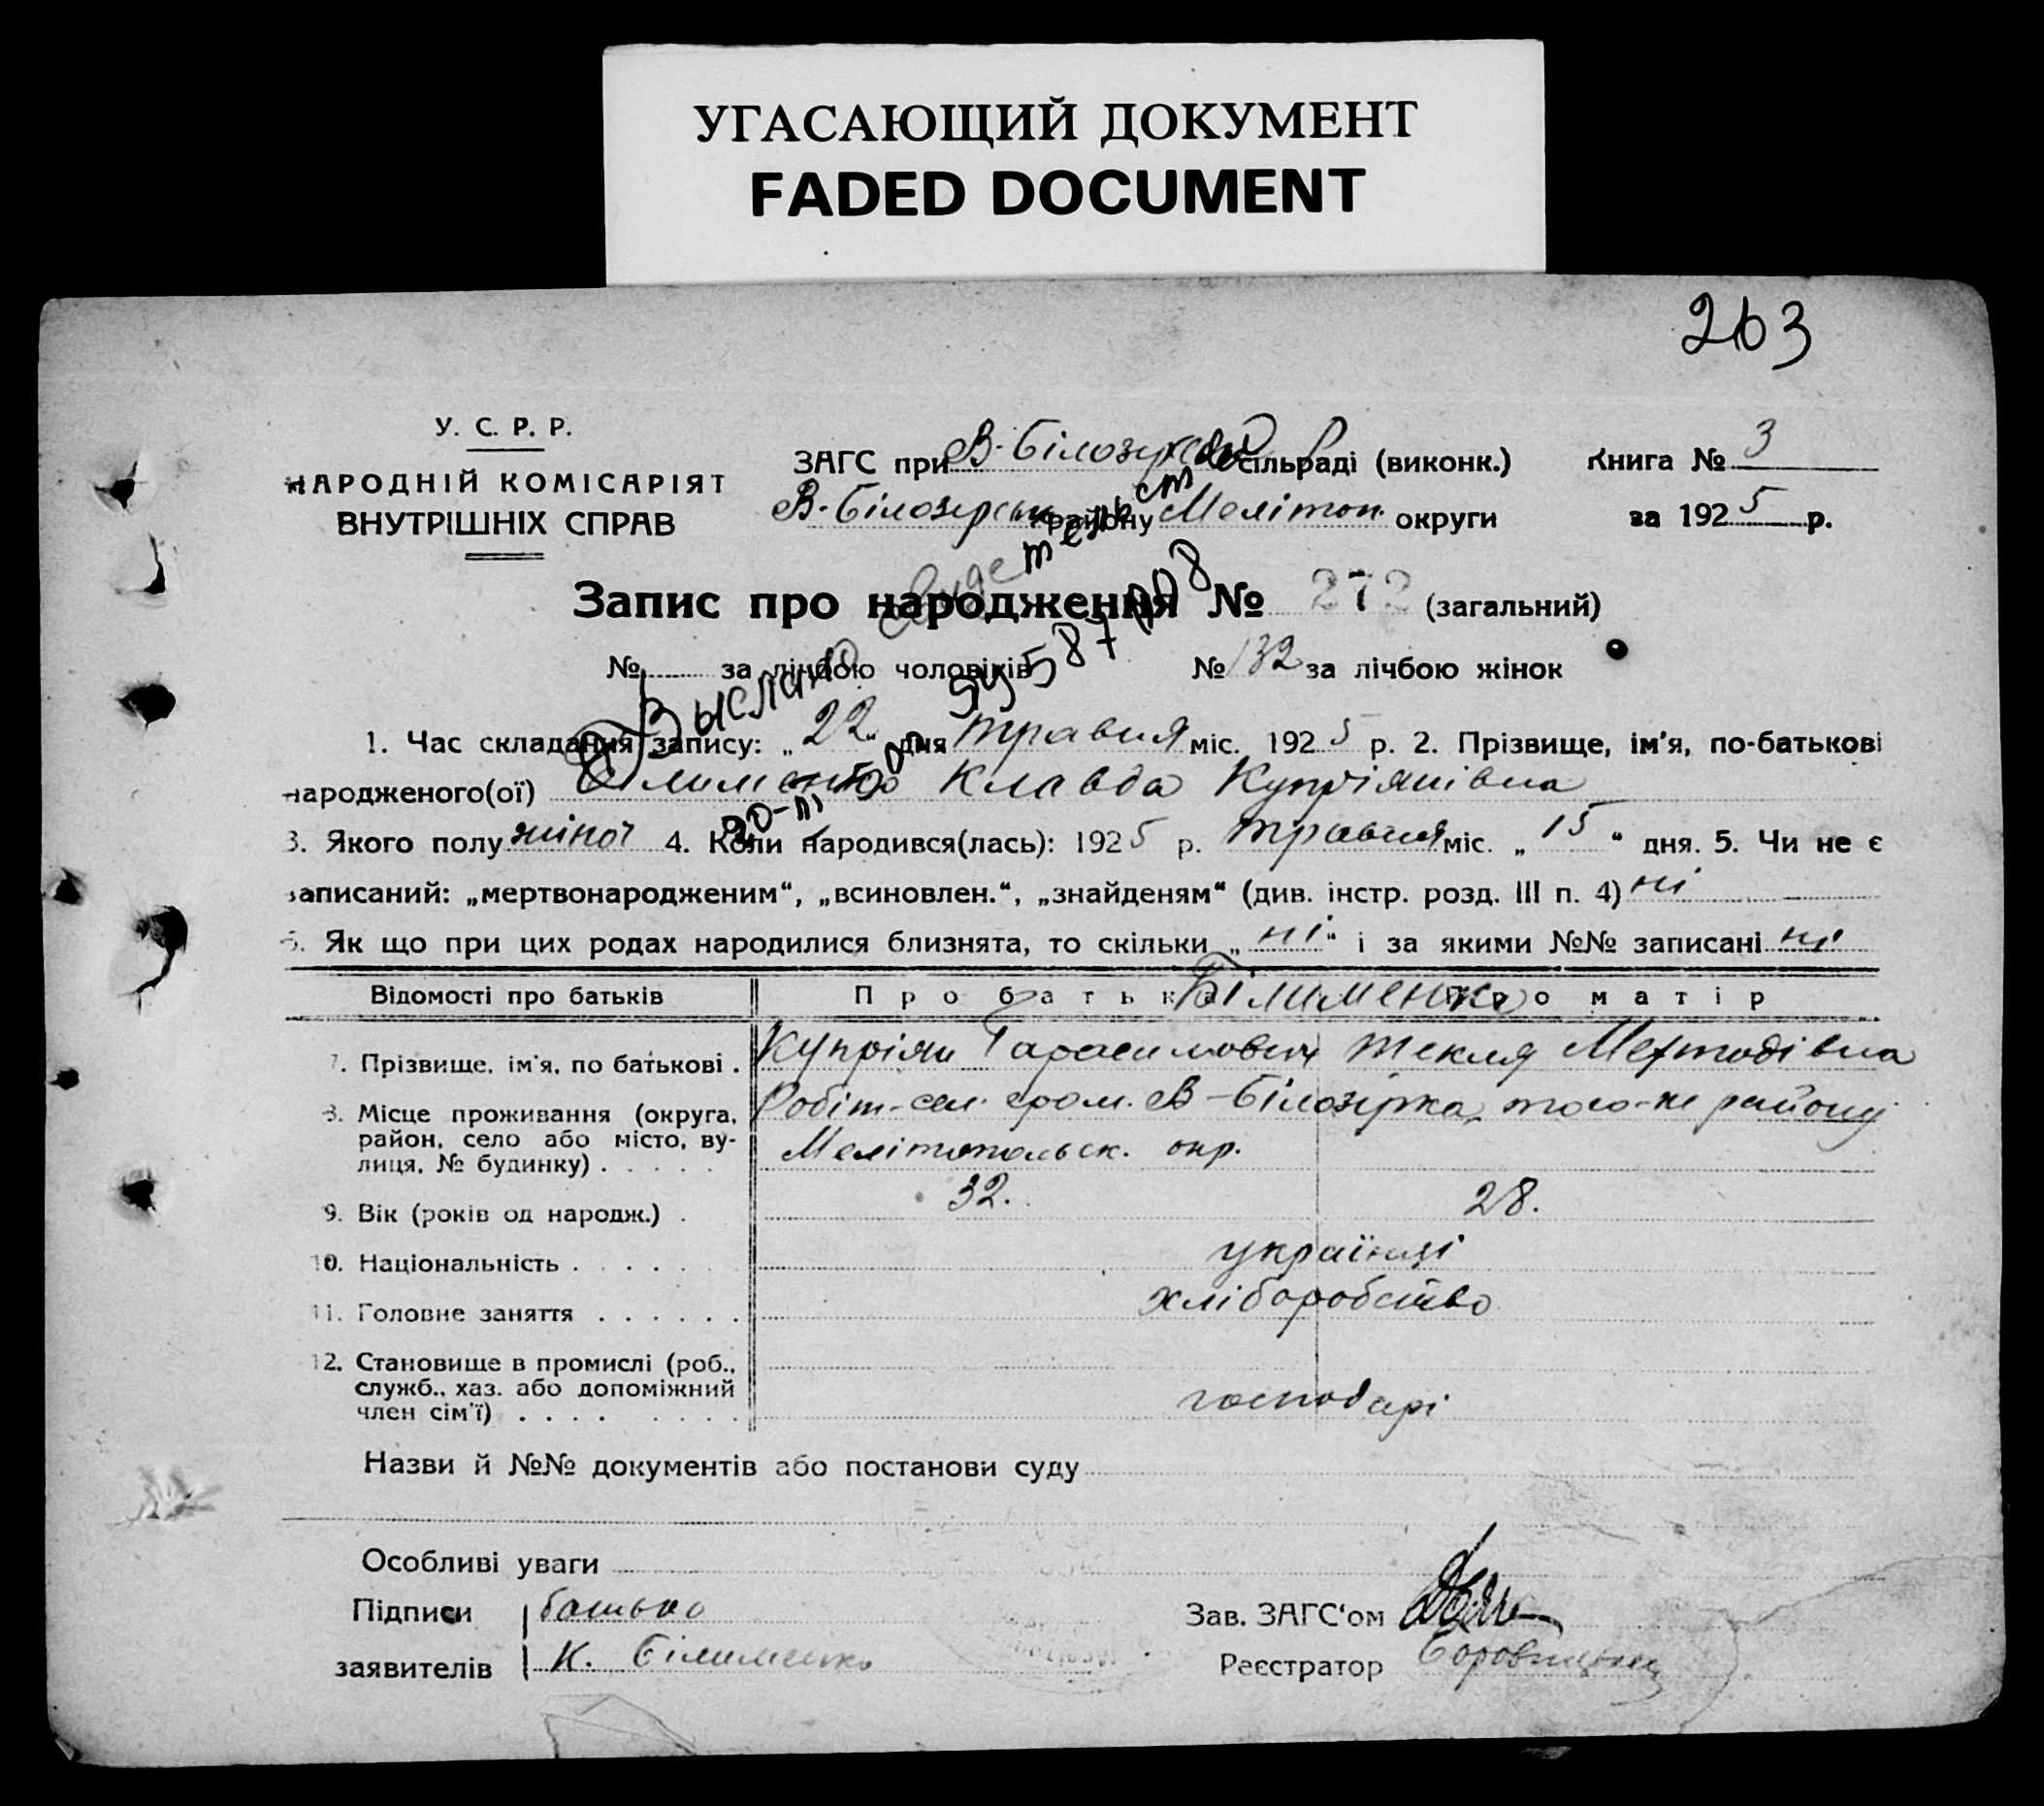 УГАСАЮЩИЙ ДОКУМЕНТ
FADED DOCUMENT
263
У. С. Р. Р.
НАРОДНІЙ КОМІСАРІЯТ
ВНУТРІШНІХ СПРАВ
ЗАГС при В-Білозирськ сільраді (виконк.)
В-Білозирськ району Мелітоп. округи
Книга № 3
за 1925 р.
Запис про народження № 272 (загальний)
№ за лічбою чоловіків № 132 за лічбою жінок
Выслано свидетельст
1. Час складання запису: „22“ дня травня міс. 1925 р. 2. Прізвище, ім'я, по-батькові
народженого(ої) Білименко Клавда Купріянівна
3. Якого полу жіної 4. Коли народився(лась): 1925 р. травня міс. „15“ дня. 5. Чи не є
записаний: „мертвонародженим“, „всиновлен.“, „знайденям“ (див. інстр. розд. III п. 4) ні
6. Як що при цих родах народилися близнята, то скільки „ні“ і за якими №№ записані ні
Відомості про батьків Про батька Про матір
Білименко
7. Прізвище, ім'я, по батькові . Купріян Тарасимович Текля Мефтодівна
8. Місце проживання (округа, район, село або місто, вулиця, № будинку) . . . . . Робіт-сел. гром. В-Білозірка, того-ж району
Мелітопольск. окр.
9. Вік (років од народж.) . 32. 28.
10. Національність . . . . . . українці
11. Головне заняття . . . . . . хліборобство
12. Становище в промислі (роб., служб., хаз. або допоміжний член сім'ї) . . . . господарі
Назви й №№ документів або постанови суду
Особливі уваги
Підписи батько
заявителів К. Білименко
Зав. ЗАГС'ом
Реєстратор